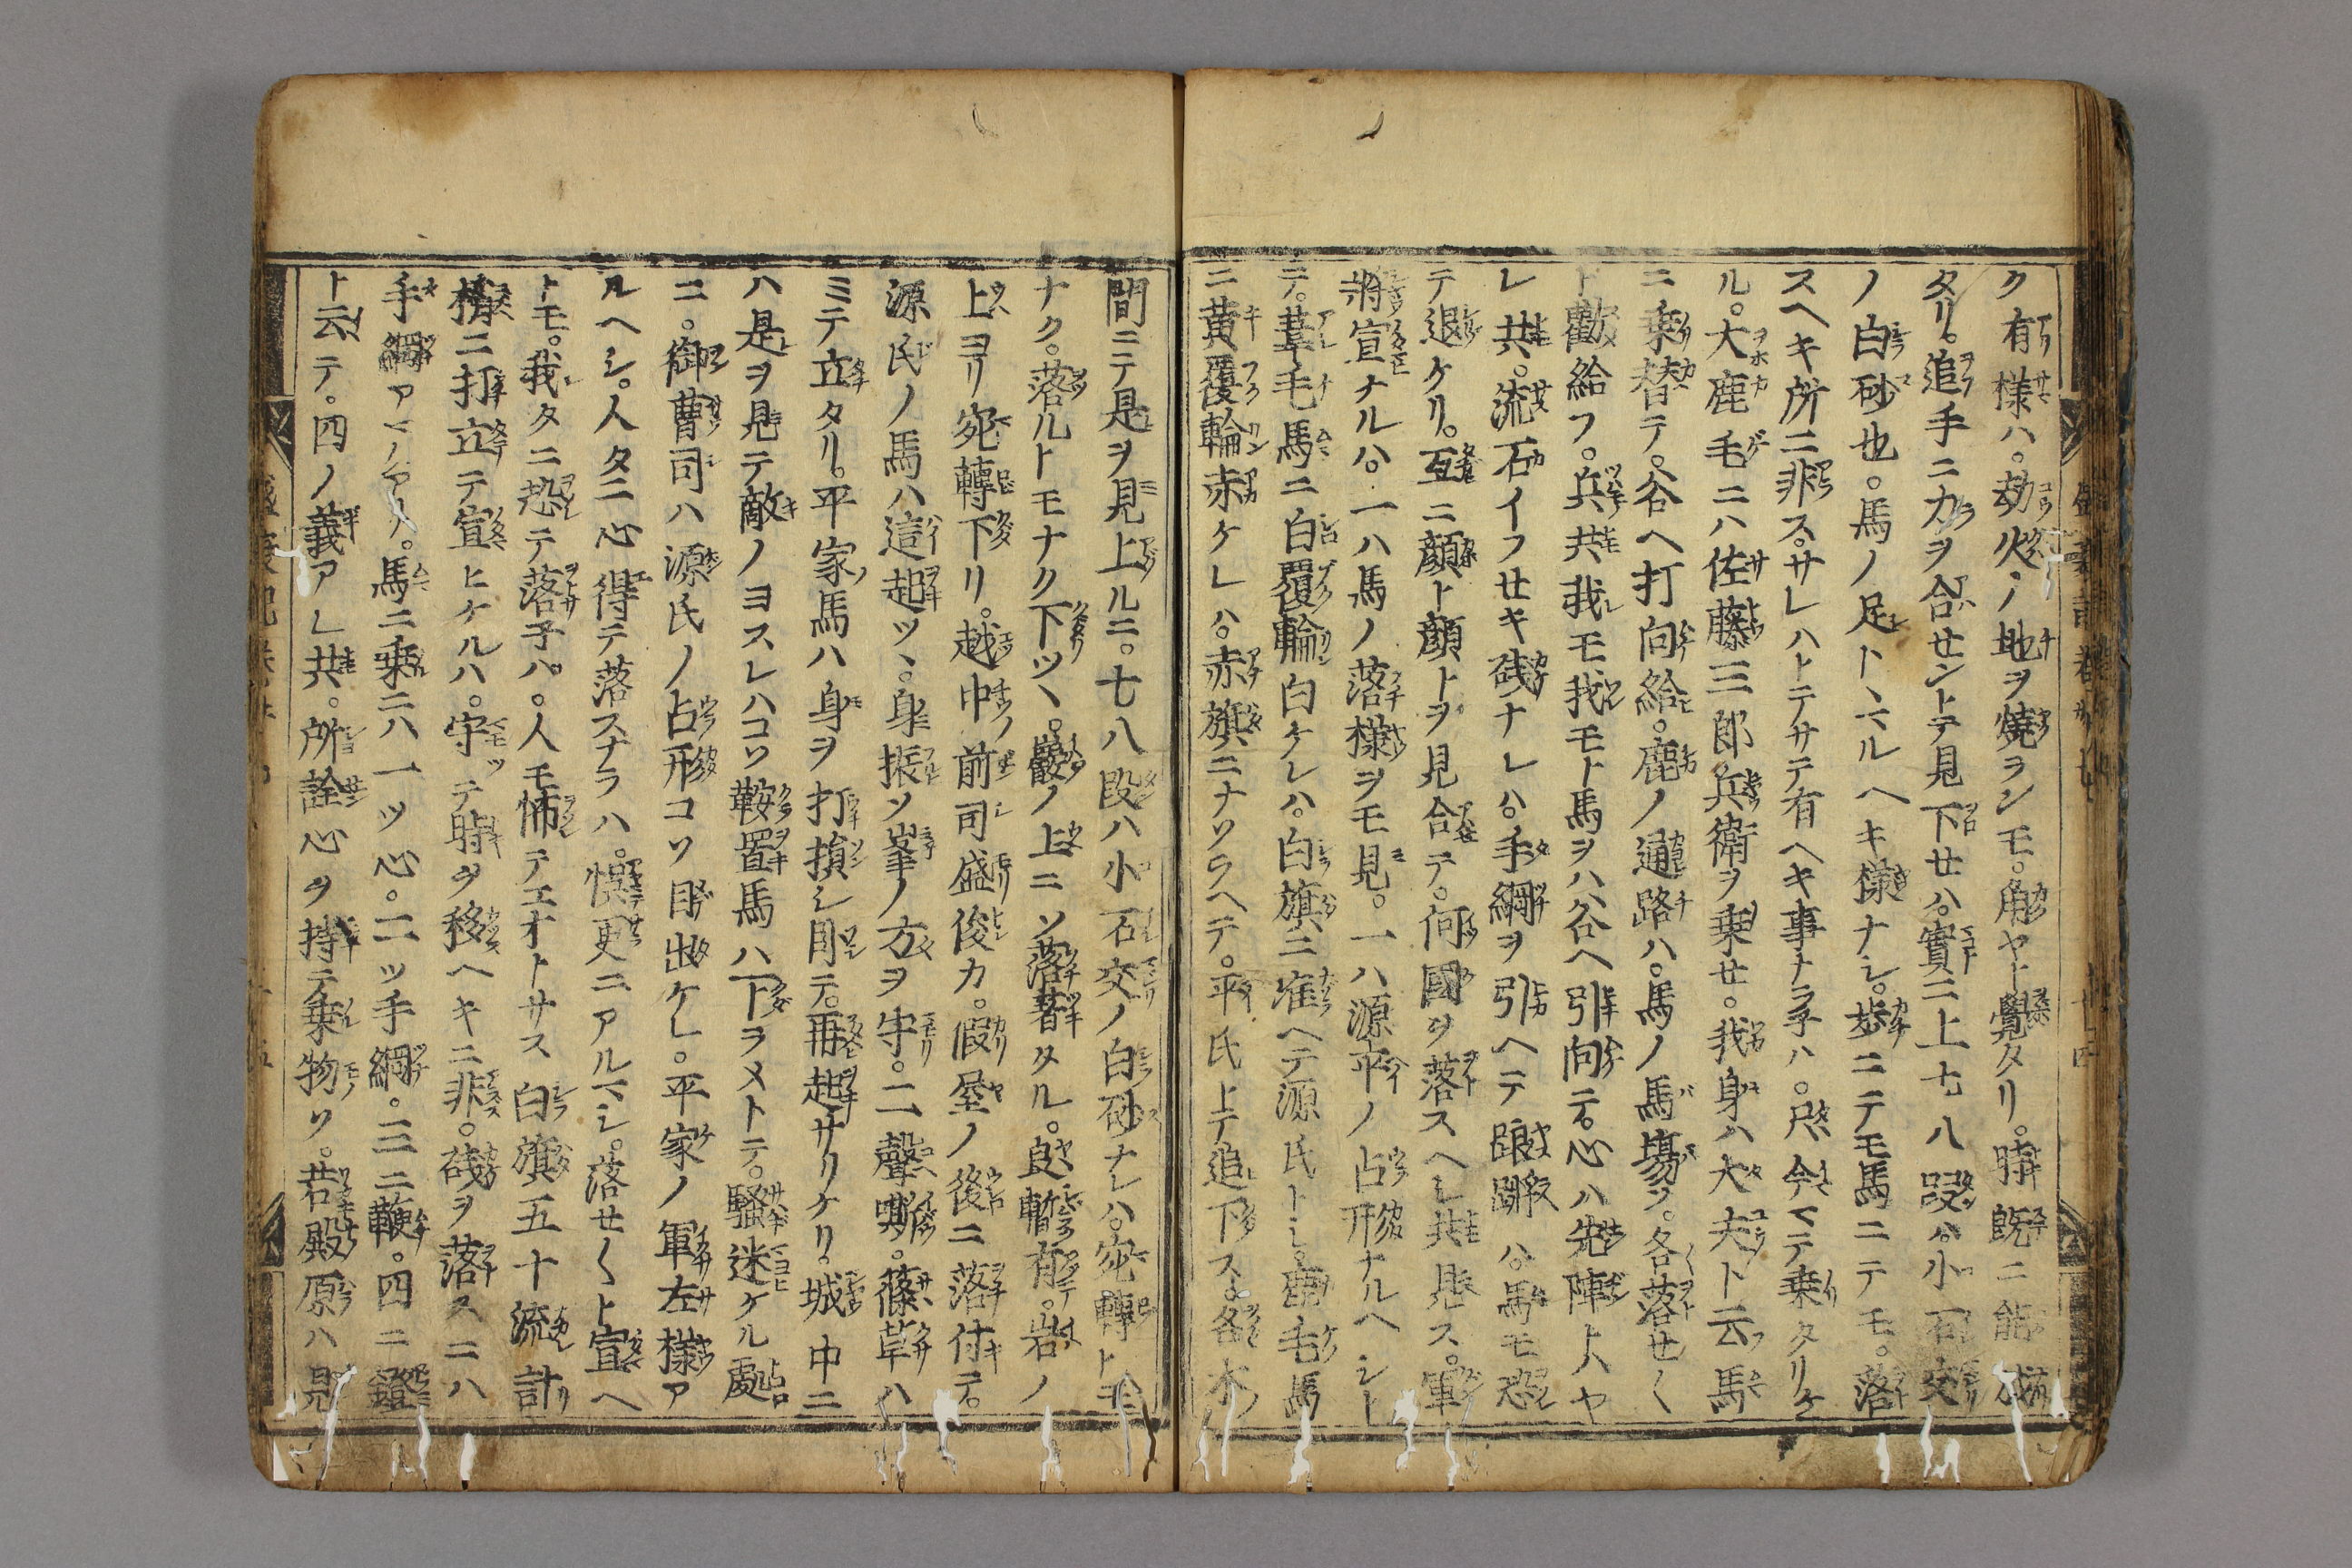 ク有様ハ。劫火ノ地ヲ焼ランモ。角ヤト覺タリ。時既ニ能成
タリ。追手ニ力ヲ合セントテ見下セハ。實ニ上七八段ハ。小石交
ノ白砂也。馬ノ足トヽマルヘキ様ナシ。歩ニテモ馬ニテモ。落
スヘキ所ニ非ス。サレハトテサテ有ヘキ事ナラ子ハ。只今マテ乗タリケ
ル。大鹿毛ニハ佐藤三郎兵衛ヲ乗セ。我身ハ大夫ト云馬
ニ乗替テ。谷ヘ打向給。鹿ノ通路ハ。馬ノ馬場ソ。各落セ〱
ト勸給フ。兵共我モ我モト馬ヲハ谷ヘ引向テ。心ハ先陣トハヤ
レ共。流石イフセキ磯ナレハ。手綱ヲ引ヘテ踉䠙ハ。馬モ恐
テ退ケリ。互ニ顔ト顔トヲ見合テ。何國ヲ落スヘシ共見ス。軍
將宣ナルハ。一ハ馬ノ落様ヲモ見。一ハ源平ノ占形ナルヘシト
テ。葦毛馬ニ白覆輪白ケレハ。白旗ニ准ヘテ源氏トシ。鹿毛馬
ニ黄覆輪赤ケレハ。赤旗ニナソラヘテ。平氏トテ追下ス。各木ノ
間ニテ是ヲ見上ルニ。七八段ハ小石交ノ白砂ナレハ。宛轉トモ
ナク。落ルトモナク下ツヽ。巖ノ上ニソ落著タル。良暫有テ。岩ノ
上ヨリ宛轉下リ。越中ノ前司盛俊カ。假屋ノ後ニ落付テ。
源氏ノ馬ハ這起ツヽ。身振ソ峯ノ方ヲ守。二聲嘶。篠草ハ
ミテ立タリ。平家ノ馬ハ身ヲ打損シ臥テ。再起サリケリ。城中ニ
ハ是ヲ見テ敵ノヨスレハコソ鞍置馬ハ下ヲメトテ。騒迷ケル處
ニ。御曹司ハ源氏ノ占形コソ目出ケレ。平家ノ軍左様ア
ルヘシ。人タニ心得テ落スナラハ。悞更ニアルマシ。落セ〱ト宣ヘ
トモ。我タニ恐テ落子ハ。人モ怖テエオトサス白旗五十流計
梢ニ打立テ宣ヒケルハ。守ッテ時ヲ移ヘキニ非。磯ヲ落スニハ
手綱アマノアリ。馬ニ乗ニハ一ツ心。二ツ手綱。三ニ鞭。四ニ鐙
ト云テ。四ノ義アレ共。所詮心ヲ持テ乗物ソ。若殿原ハ見